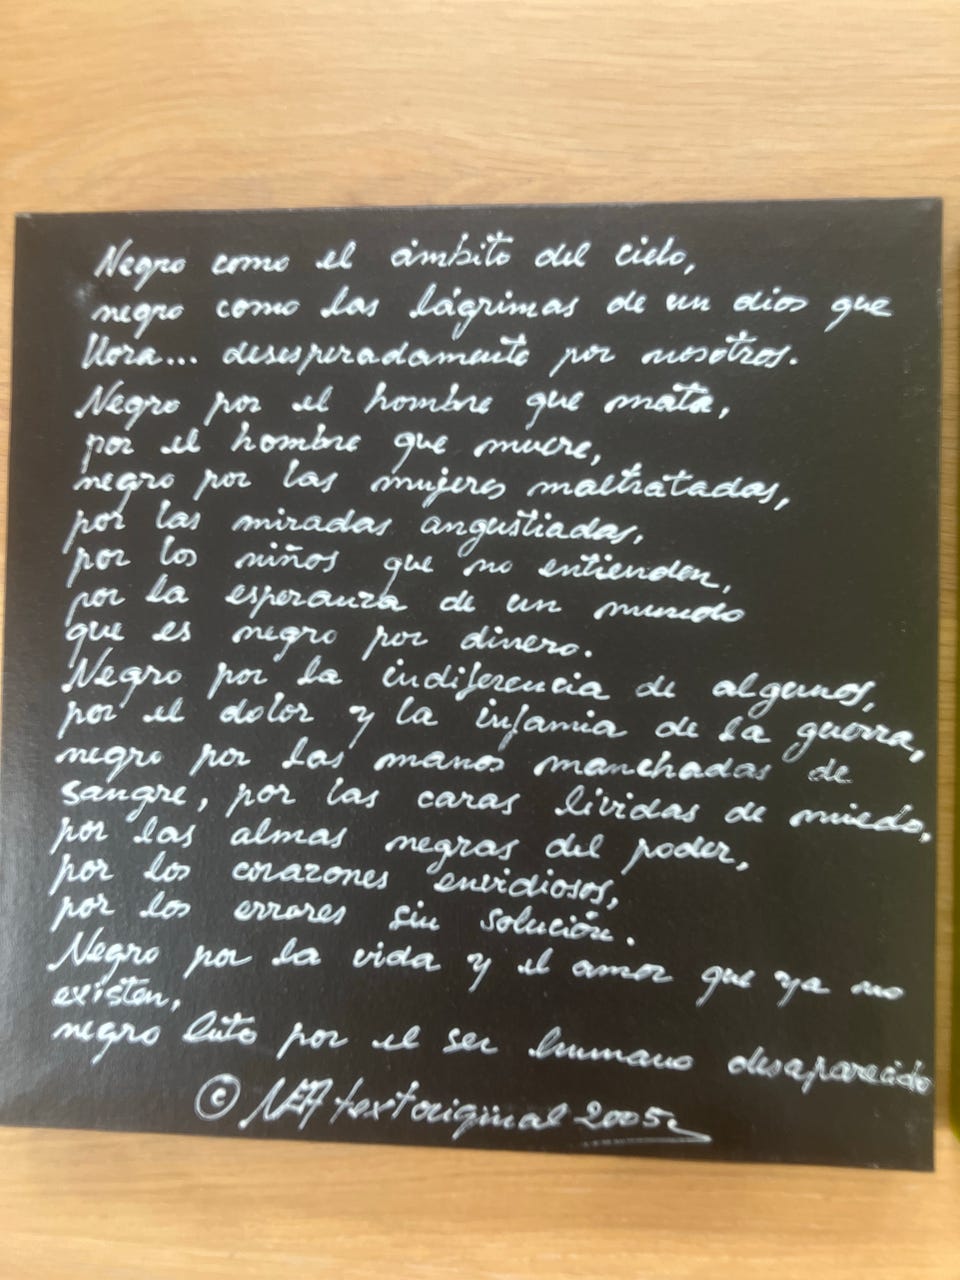 Negro como el ámbito del cielo,
negro como las lágrimas de un dios que
llora... desesperadamente por nosotros.
Negro por el hombre que mata,
por el hombre que muere,
negro por las mujeres maltratadas,
por las miradas angustiadas,
por los niños que no entienden,
por la esperanza de un mundo
que es negro por dinero.
Negro por la indiferencia de algunos,
por el dolor y la infamia de la guerra,
negro por las manos manchadas de
sangre, por las caras lívidas de miedo,
por las almas negras del poder,
por los corazones envidiosos,
por los errores sin solución.
Negro por la vida y el amor que ya no
existen,
negro luto por el ser humano desaparecido
© NEA text original 2005